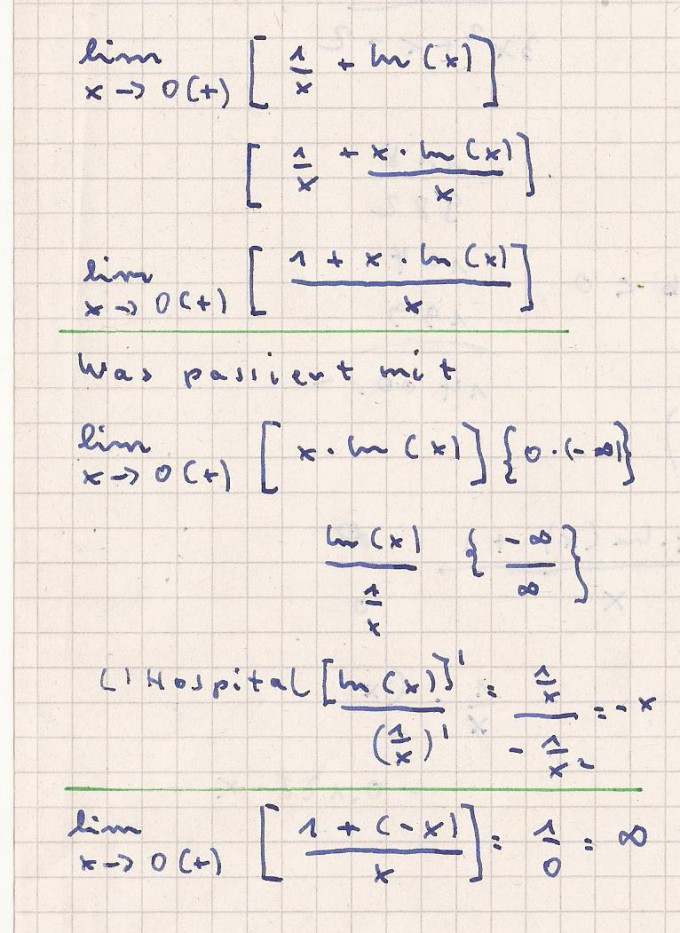 lim x → 0(+) [ 1/x + ln (x) ]
[ 1/x + x · ln (x) / x ]
lim x → 0(+) [ 1 + x · ln (x) / x ]
Was passiert mit
lim x → 0(+) [ x · ln (x) ] { 0 · (-∞) }
ln (x) / 1/x { -∞ / ∞ }
L'Hospital [ln (x)]' / (1/x)' = 1/x / - 1/x² = - x
lim x → 0(+) [ 1 + (-x) / x ] = 1/0 = ∞